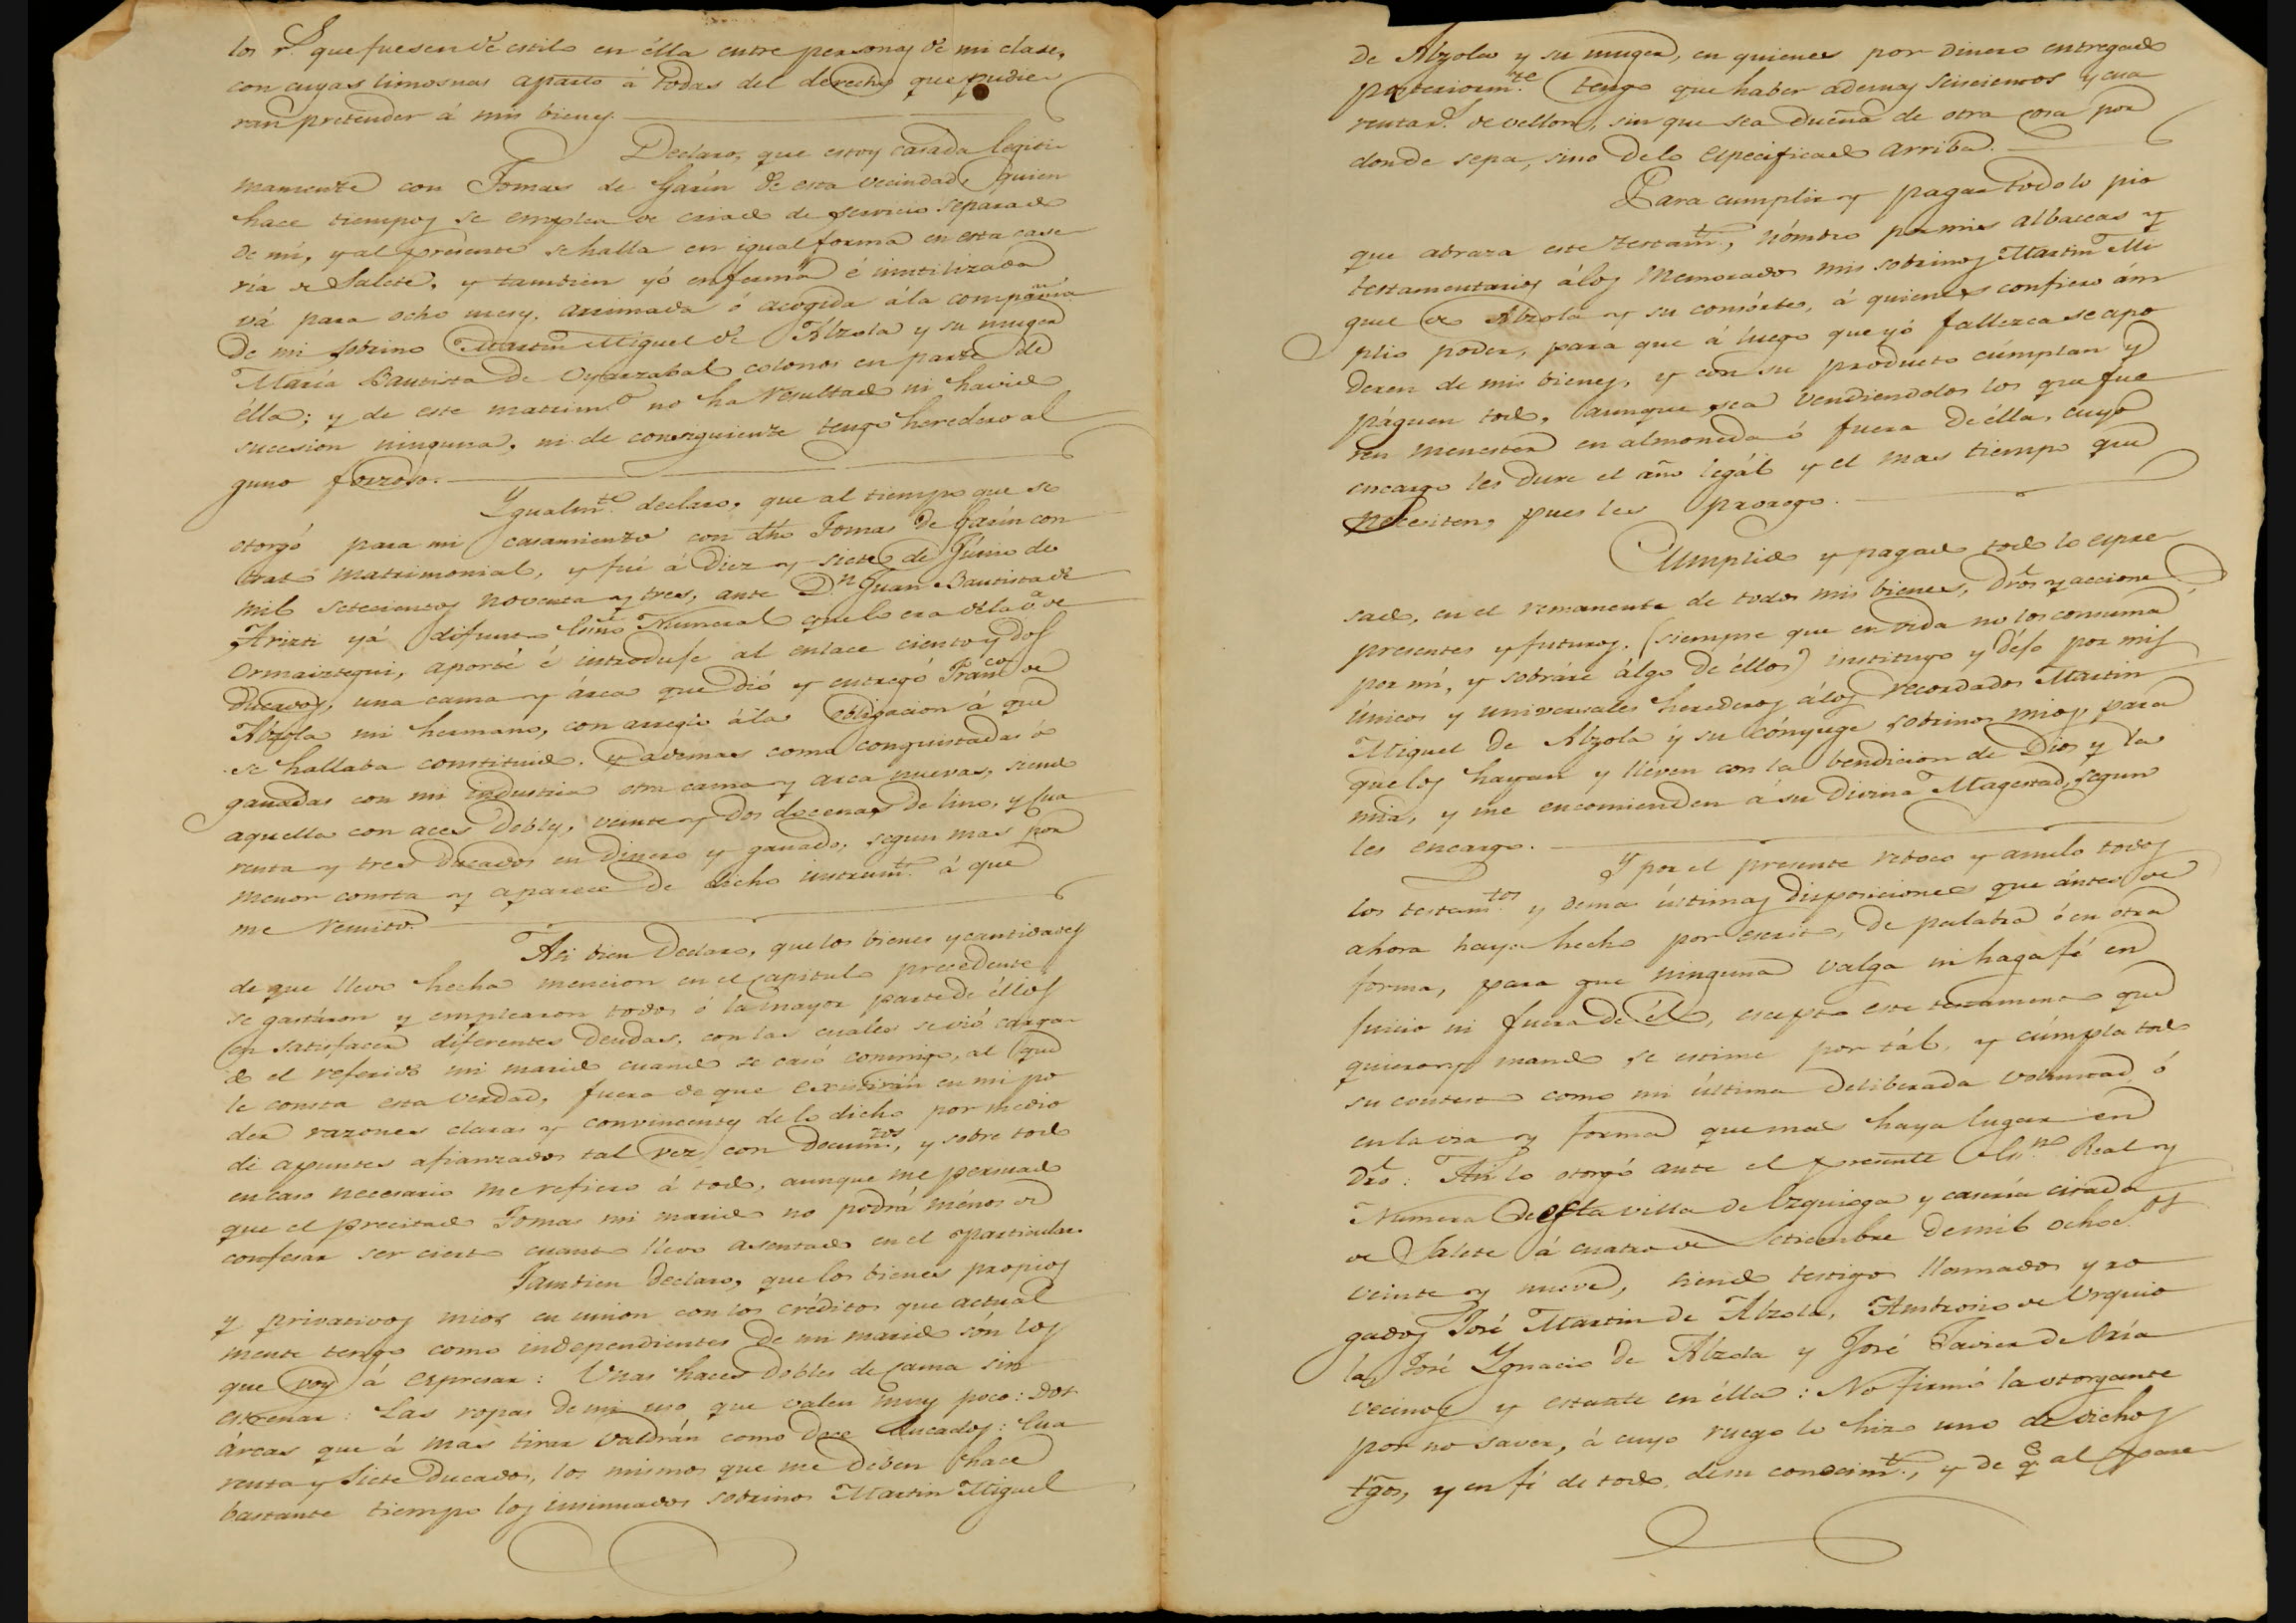 los r.s que fuesen de estilo en élla entre personas de mi clase,
con cuyas limosnas aparto á todas del derecho que pudie
ran pretender á mis bienes.
Declaro, que estoy casada legiti
mamente con Tomas de Garín de esta vecindad, quien
hace tiempos se emplea de criado de servicio separado
de mí, y al presente se halla en igual forma en esta case
ría de Salete, y tambien yó enferma é inutilizada
vá para ocho meses, arrimada ó acogida á la compañia
de mi sobrino Martin Miguel de Alzola y su muger
María Bautista de Oyarzabal colonos en parte de
élla; y de este matrim.o no ha resultado ni havido
sucesion ninguna, ni de consiguiente tengo heredero al
guno forzoso.
Ygualm.te declaro, que al tiempo que se
otorgó para mi casamiento con dho Tomas de Garín con
trato matrimonial, y fué á diez y siete de Junio de
mil setecientos noventa y tres, ante D.n Juan Bautista de
Arizti yá difunto Essno Numeral que lo era de la v.a de
Ormaiztegui, aporté é introduje al enlace ciento y dos
ducados, una cama y árca que dió y entregó Fran.co de
Alzola mi hermano, con arreglo á la obligacion á que
se hallaba constituido. Y ademas como conquistadas ó
ganadas con mi industria otra cama y arca nuevas, siendo
aquella con aces dobles, veinte y dos docenas de lino, y cua
renta y tres ducados en dinero y ganado, segun mas por
menor consta y aparece de dicho instrum.to á que
me remito.
Asi bien declaro, que los bienes y cantidades
de que llevo hecha mencion en el capitulo precedente,
se gastáron y empleáron todos ó la mayor parte de éllos
en satisfacer diferentes deudas, con las cuales se vió carga
do el referido mi marido cuando se casó conmigo, al que
le consta esta verdad, fuera de que existirán en mi po
der razones claras y convincentes de lo dicho por medio
de apuntes afianzados tal vez con docum.tos, y sobre todo
en caso necesario me refiero á todo, aunque me persuado
que el precitado Tomas mi marido no podrá ménos de
confesar ser cierto cuanto llevo asentado en el particular.
Tambien declaro, que los bienes propios
y privativos mios en union con los créditos que actual
mente tengo como independientes de mi marido són los
que voy á espresar: Unas haces dobles de cama sin
estrenar: Las ropas de mi uso que valen muy poco: Dos
árcas que á mas tirar valdrán como doce ducados: Cua
renta y siete ducados, los mismos que me deben hace
bastante tiempo los insinuados sobrinos Martin Miguel
de Alzola y su muger, en quienes por dinero entregado
posteriorm.te tengo que haber ademas seiscientos y cua
renta r.s de vellon, sin que sea dueña de otra cosa por
donde sepa, sino de lo especificado arriba.
Para cumplir y pagar todo lo pio
que abraza este testam.to, nómbro por mis albaceas y
testamentarios á los memorados mis sobrinos Martin Mi
guel de Alzola y su consórte, á quienes confiero ám
plio poder, para que á luego que yó fallezca se apo
deren de mis bienes, y con su producto cúmplan y
páguen todo, aunque sea vendiendolos los que fue
ren menester en almoneda ó fuera de élla, cuyo
encargo les dure el año legál y el mas tiempo que
necesiten, pues les prorogo.
Cumplido y pagado todo lo espre
sado, en el remanente de todos mis bienes, dros y acciones
presentes y futuros, (siempre que en vida no los consuma
por mí, y sobráre álgo de éllos) instituyo y déjo por mis
únicos y universales herederos á los recordados Martin
Miguel de Alzola y su cónyuge sobrinos mios, para
que los hayan y lléven con la bendicion de Dios y la
mia, y me encomienden á su Divina Magestad, segun
les encargo.
Y por el presente reboco y anulo todos
los testam.tos y demas últimas disposiciones que ántes de
ahora haya hecho por escrito, de palabra ó en otra
forma, para que ninguna valga ni haga fé en
juicio ni fuera de él, escepto este testamento que
quiero y mando se estime por tál, y cúmpla todo
su contesto como mi última deliberada voluntad, ó
en la via y forma que mas haya lugar en
dro: Asi lo otorgó ante el presente Ess.no Real y
Numeral de esta villa de Ezquioga y casería citada
de Salete á cuatro de Setiembre de mil ochoc.tos
veinte y nueve, siendo testigos llamados y ro
gados José Martin de Alzola, Ambrosio de Urquio
la, José Ygnacio de Alzola y José Javier de Oria
vecinos y estante en élla: No firmó la otorgante
por no saver, á cuyo ruego lo hizo uno de dichos
tgos, y en fé de todo, de su conocim.to, y de q.e al pare